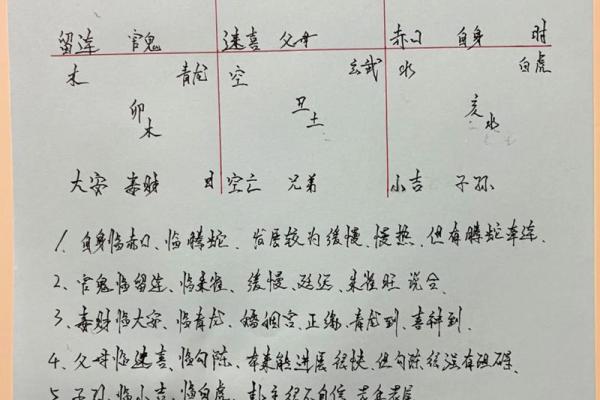 留连 官鬼 速喜 父母 赤口 自身 时
木 青龙 空 玄武 水 白虎
卯 丑 亥
木 土 水
大安 妻财 日 空亡 兄弟 小吉 子孙
1. 自身临赤口、临螣蛇、发展较为缓慢、慢热、但有螣蛇牵连、
2、官鬼临留连、临朱雀、缓慢、延迟、朱雀旺 说合
3、妻财临大安、临青龙、婚姻宫、正缘、青龙到、喜神到、
4、父母临速喜、临勾陈、本来能进展很快、但勾陈很 有阻碍、
5、子孙、临小吉、临白虎、卦主很不自信